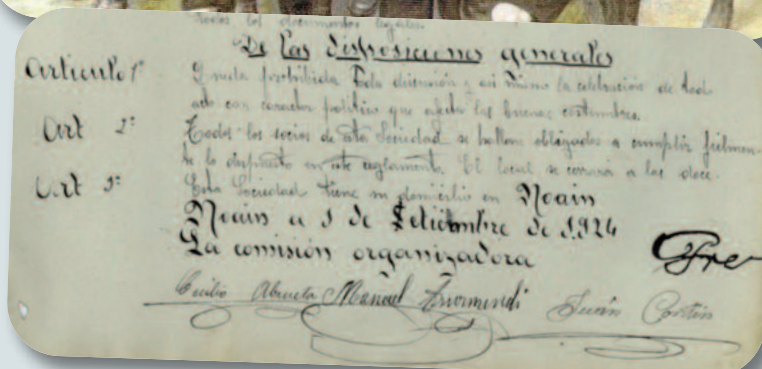 todos los documentos legales.
De las disposiciones generales
Articulo 1º Queda prohibida toda discusión y asi mismo la celebración de todo
acto con caracter politico que afecte las buenas costumbres.
Art 2º Todos los socios de esta Sociedad se hallan obligados a cumplir fielmen-
te lo dispuesto en este reglamento. El local se cerrará a las doce.
Art 3º Esta Sociedad tiene su domicilio en Noain
Noain a 1 de Setiembre de 1.924
La comisión organizadora
Cecilio Manuel Juan